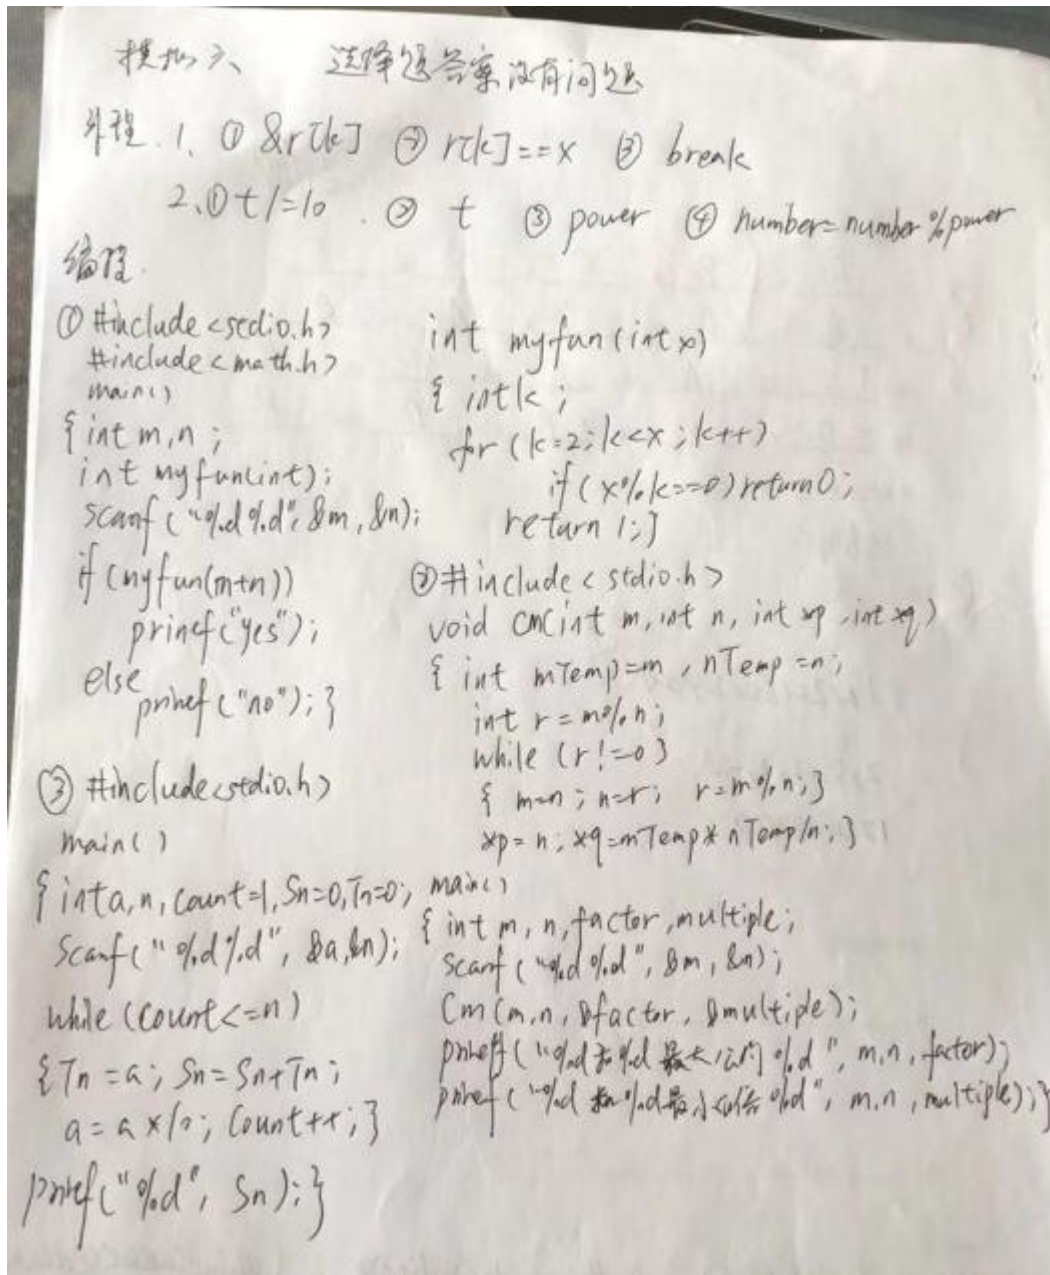 模拟六、 选择题答案没有问题
补程. 1. ① &r[k] ② r[k]==x ③ break
2、① t/=10 . ② t ③ power ④ number=number%power
编程.
① #include<stdio.h>
#include<math.h>
main()
{int m,n;
int myfun(int);
scanf("%d%d",&m,&n);
if(myfun(m+n))
printf("yes");
else
printf("no");}
int myfun(int x)
{ int k;
for (k=2;k<x;k++)
if(x%k==0)return0;
return 1;}
② #include<stdio.h>
void cm(int m,int n, int *p,int *q)
{ int mTemp=m , nTemp=n;
int r=m%n;
while (r!=0)
{ m=n; n=r; r=m%n;}
*p=n; *q=mTemp*nTemp/n;}
main()
{ int m, n,factor,multiple;
scanf("%d%d",&m,&n);
cm(m,n,&factor,&multiple);
printf("%d和%d最大公约%d", m,n,factor);
printf("%d和%d最小公倍%d", m,n,multiple);}
③ #include<stdio.h>
main()
{inta,n,count=1,Sn=0,Tn=0;
scanf("%d%d", &a,&n);
while(count<=n)
{Tn=a; Sn=Sn+Tn;
a=a*10; count++;}
printf("%d", Sn);}